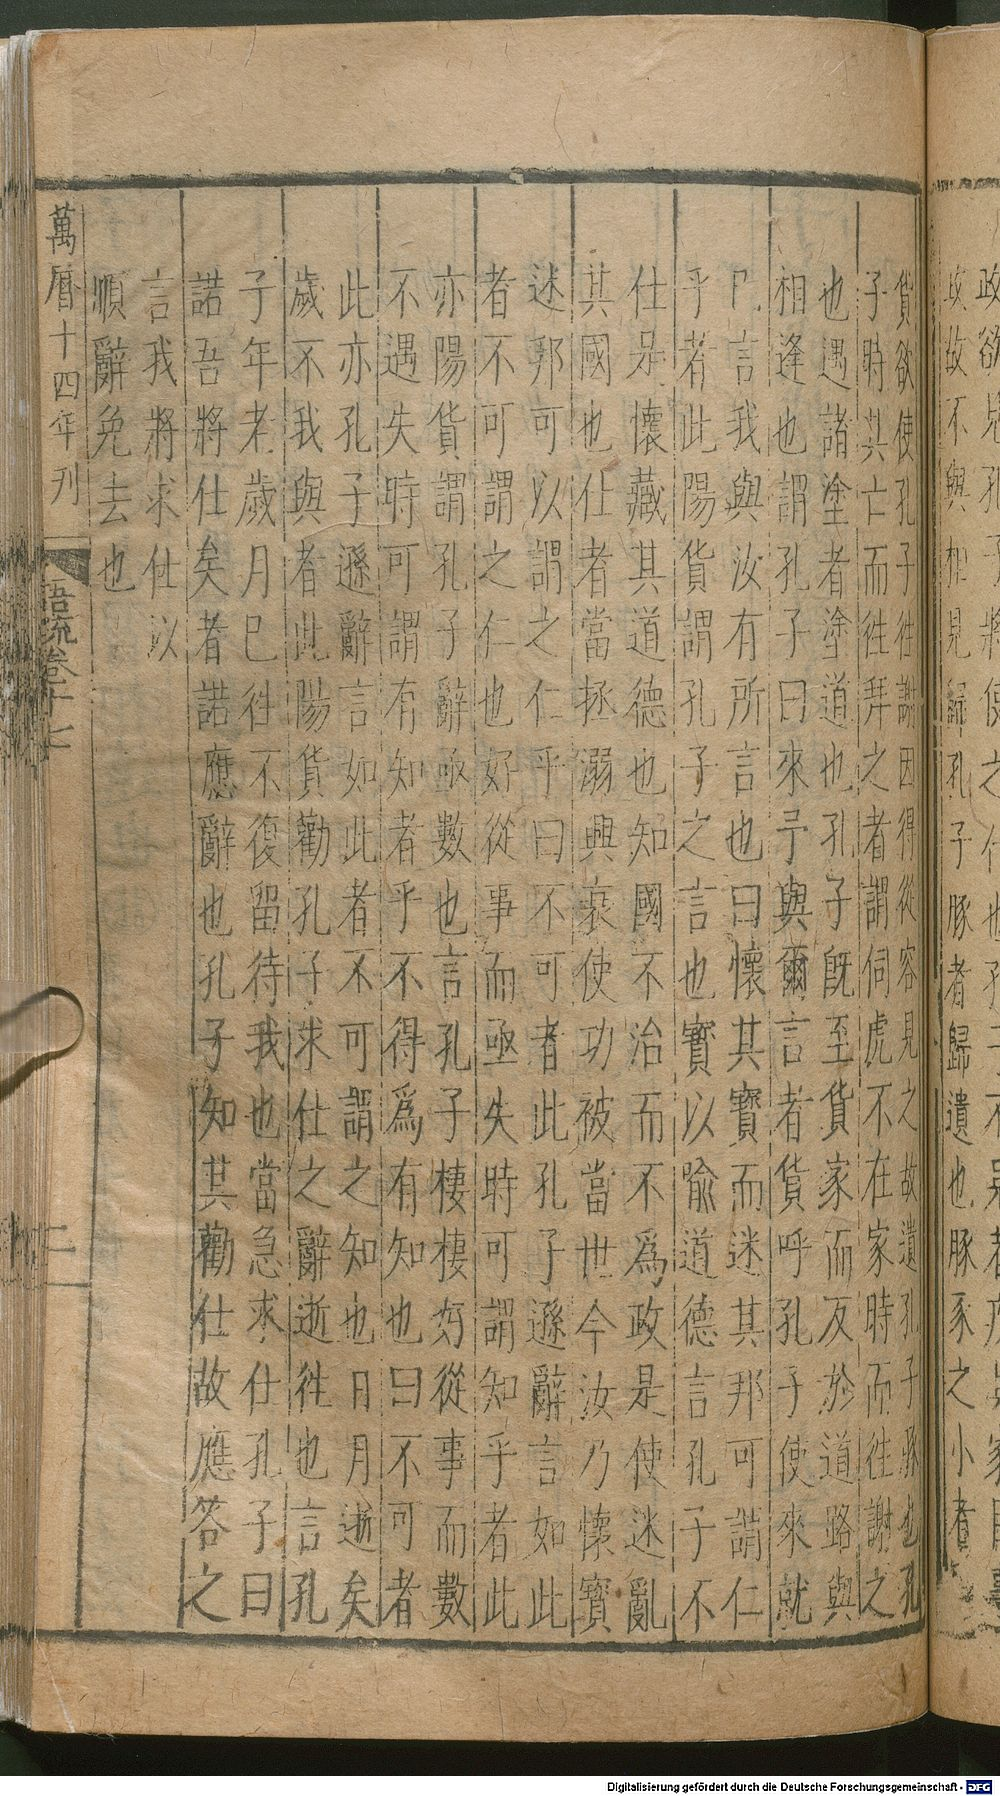 政欲見孔子將使之仕也孔子不見者
攻故不與相見歸孔子豚者歸遺也豚豕之小者
貨欲使孔子往謝因得從容見之故遺孔子豚也孔
子時其亡而往拜之者謂伺虎不在家時而往謝之
也遇諸塗者塗道也孔子既至貨家而反於道路與
相逢也謂孔子曰來予與爾言者貨呼孔子使來就
已言我與汝有所言也曰懷其寶而迷其邦可謂仁
乎者此陽貨謂孔子之言也寶以喻道德言孔子不
仕是懷藏其道德也知國不治而不爲政是使迷亂
其國也仕者當拯溺興衰使功被當世今汝乃懷寶
迷邦可以謂之仁乎曰不可者此孔子遜辭言如此
者不可謂之仁也好從事而亟失時可謂知乎者此
亦陽貨謂孔子辭亟數也言孔子棲棲好從事而數
不遇失時可謂有知者乎不得爲有知也曰不可者
此亦孔子遜辭言如此者不可謂之知也日月逝矣
歲不我與者此陽貨勸孔子求仕之辭逝往也言孔
子年老歲月已往不復留待我也當急求仕孔子曰
諾吾將仕矣者諾應辭也孔子知其勸仕故應答之
言我將求仕以
順辭免去也
萬曆十四年刊
語疏卷十七
二
Digitalisierung gefördert durch die Deutsche Forschungsgemeinschaft - DFG